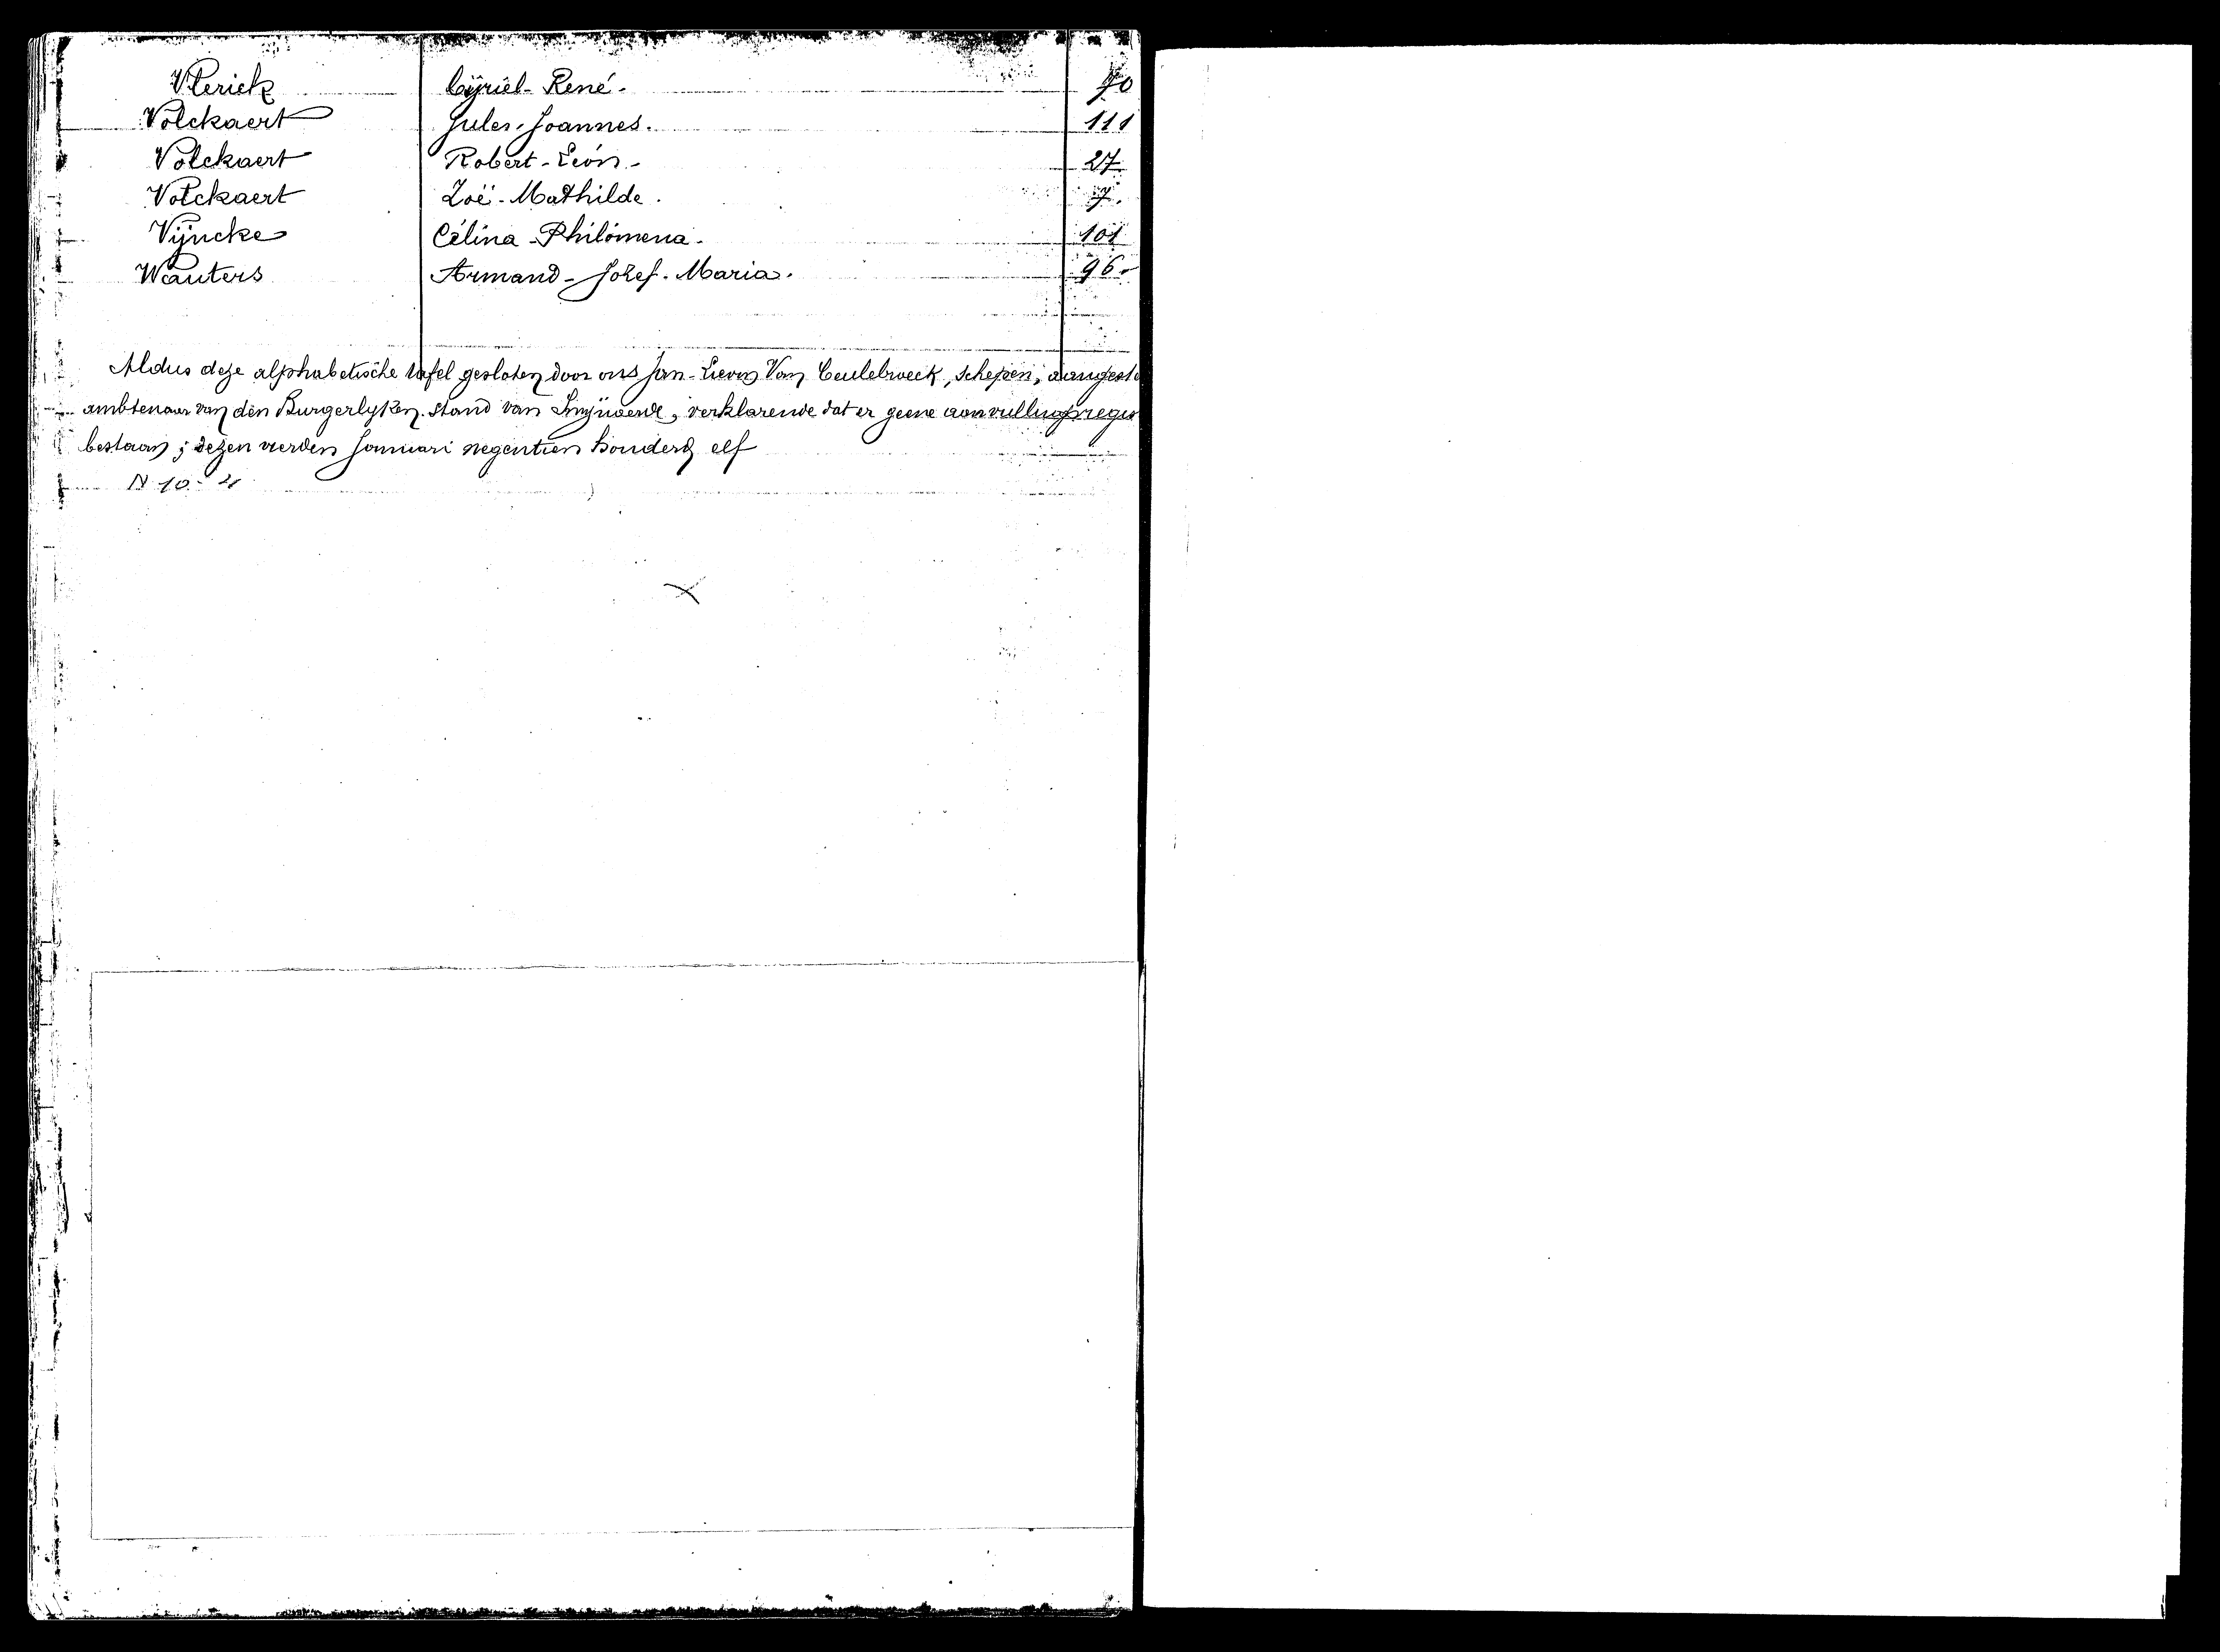 Vlerick Cyriel-René. 70
Volckaert Jules-Joannes. 111
Volckaert Robert-Léon- 27
Volckaert Zoë-Mathilde. 7.
Vijncke Célina-Philomena. 101
Wauters Armand-Jozef-Maria. 96.
Aldus deze alphabetische tafel gesloten door ons Jan-Lievin Van Ceulebroeck, schepen, aangeste
ambtenaar van den Burgerlyken-stand van Smijnaerde, verklarende dat er geene aanvullingsregis
bestaan; dezen vierden Januari negentien honderd elf
N 10.